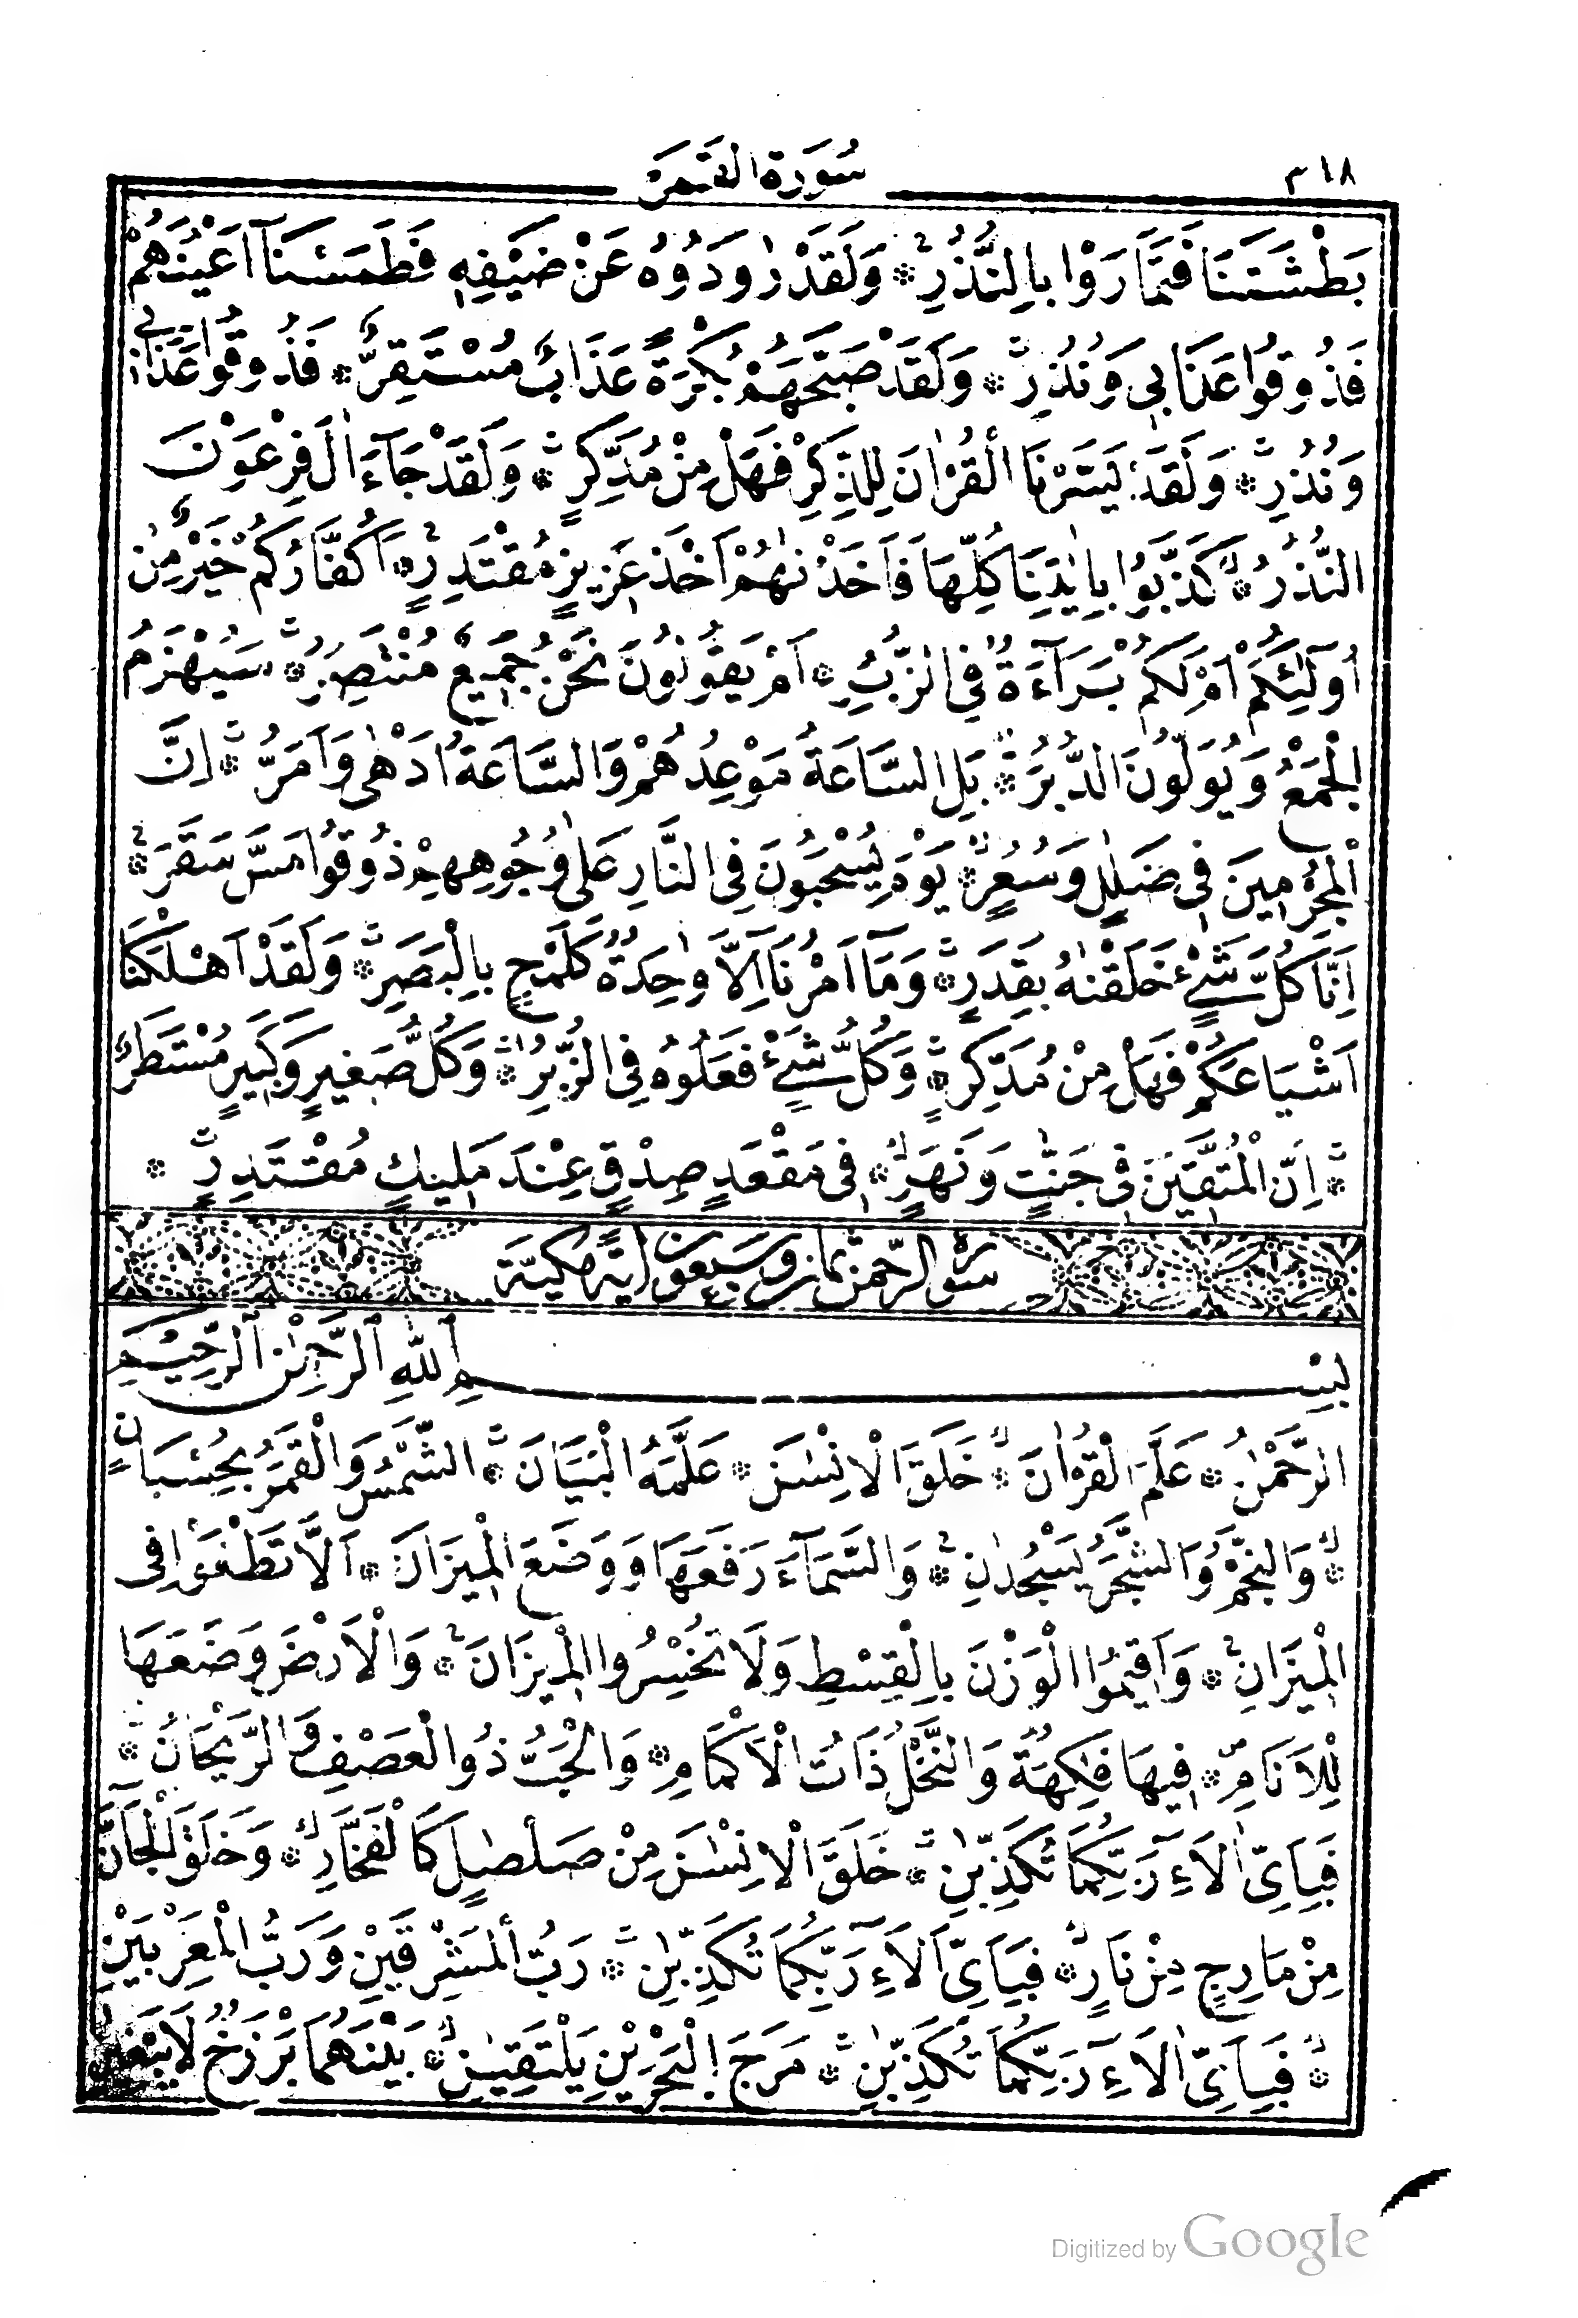 ٣١٨
سُورَةُ الْقَمَرِ
بَطْشَتَنَا فَتَمَارَوْا بِالنُّذُرِ ۞ وَلَقَدْ رٰوَدُوْهُ عَنْ ضَيْفِهٖ فَطَمَسْنَآ اَعْيُنَهُمْ
فَذُوقُوا عَذَابِي وَنُذُرِ ۞ وَلَقَدْ صَبَّحَهُمْ بُكْرَةً عَذَابٌ مُسْتَقِرٌّ ۞ فَذُوقُوا عَذَابِي
وَنُذُرِ ۞ وَلَقَدْ يَسَّرْنَا الْقُرْاٰنَ لِلذِّكْرِ فَهَلْ مِنْ مُدَّكِرٍ ۞ وَلَقَدْ جَآءَ اٰلَ فِرْعَوْنَ
النُّذُرُ ۞ كَذَّبُوا بِاٰيٰتِنَا كُلِّهَا فَاَخَذْنٰهُمْ اَخْذَ عَزِيزٍ مُقْتَدِرٍ ۞ اَكُفَّارُكُمْ خَيْرٌ مِنْ
اُولٰٓئِكُمْ اَمْ لَكُمْ بَرَآءَةٌ فِي الزُّبُرِ ۞ اَمْ يَقُولُونَ نَحْنُ جَمِيعٌ مُنْتَصِرٌ ۞ سَيُهْزَمُ
الْجَمْعُ وَيُوَلُّونَ الدُّبُرَ ۞ بَلِ السَّاعَةُ مَوْعِدُهُمْ وَالسَّاعَةُ اَدْهٰى وَاَمَرُّ ۞ اِنَّ
الْمُجْرِمِينَ فِي ضَلٰلٍ وَسُعُرٍ ۞ يَوْمَ يُسْحَبُونَ فِي النَّارِ عَلٰى وُجُوهِهِمْ ذُوقُوا مَسَّ سَقَرَ ۞
اِنَّا كُلَّ شَيْءٍ خَلَقْنٰهُ بِقَدَرٍ ۞ وَمَآ اَمْرُنَآ اِلَّا وٰحِدَةٌ كَلَمْحٍ بِالْبَصَرِ ۞ وَلَقَدْ اَهْلَكْنَا
اَشْيَاعَكُمْ فَهَلْ مِنْ مُدَّكِرٍ ۞ وَكُلُّ شَيْءٍ فَعَلُوهُ فِي الزُّبُرِ ۞ وَكُلُّ صَغِيرٍ وَكَبِيرٍ مُسْتَطَرٌ
۞ اِنَّ الْمُتَّقِينَ فِي جَنّٰتٍ وَنَهَرٍ ۞ فِي مَقْعَدِ صِدْقٍ عِنْدَ مَلِيكٍ مُقْتَدِرٍ ۞
سورة الرحمن ثمان وسبعون اية مكية
بِسْمِ اللّٰهِ الرَّحْمٰنِ الرَّحِيمِ
الرَّحْمٰنُ ۞ عَلَّمَ الْقُرْاٰنَ ۞ خَلَقَ الْاِنْسٰنَ ۞ عَلَّمَهُ الْبَيَانَ ۞ الشَّمْسُ وَالْقَمَرُ بِحُسْبَانٍ
۞ وَالنَّجْمُ وَالشَّجَرُ يَسْجُدٰنِ ۞ وَالسَّمَآءَ رَفَعَهَا وَوَضَعَ الْمِيزَانَ ۞ اَلَّا تَطْغَوْا فِي
الْمِيزَانِ ۞ وَاَقِيمُوا الْوَزْنَ بِالْقِسْطِ وَلَا تُخْسِرُوا الْمِيزَانَ ۞ وَالْاَرْضَ وَضَعَهَا
لِلْاَنَامِ ۞ فِيهَا فَاكِهَةٌ وَالنَّخْلُ ذَاتُ الْاَكْمَامِ ۞ وَالْحَبُّ ذُو الْعَصْفِ وَالرَّيْحَانُ ۞
فَبِاَيِّ اٰلَآءِ رَبِّكُمَا تُكَذِّبٰنِ ۞ خَلَقَ الْاِنْسٰنَ مِنْ صَلْصٰلٍ كَالْفَخَّارِ ۞ وَخَلَقَ الْجَآنَّ
مِنْ مَارِجٍ مِنْ نَارٍ ۞ فَبِاَيِّ اٰلَآءِ رَبِّكُمَا تُكَذِّبٰنِ ۞ رَبُّ الْمَشْرِقَيْنِ وَرَبُّ الْمَغْرِبَيْنِ
۞ فَبِاَيِّ اٰلَآءِ رَبِّكُمَا تُكَذِّبٰنِ ۞ مَرَجَ الْبَحْرَيْنِ يَلْتَقِيٰنِ ۞ بَيْنَهُمَا بَرْزَخٌ لَا يَبْغِيٰنِ
Digitized by Google